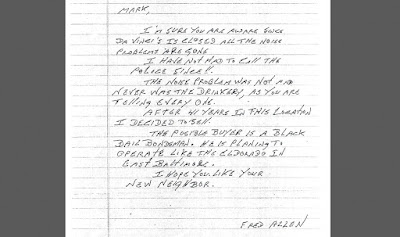 MARK,
I'M SURE YOU ARE AWARE SINCE
DA VINCI'S IS CLOSED ALL THE NOISE
PROBLEMS ARE GONE
I HAVE NOT HAD TO CALL THE
POLICE SINCE!!.
THE NOISE PROBLEM WAS NOT AND
NEVER WAS THE DRINKERY, AS YOU ARE
TELLING EVERY ONE.
AFTER 41 YEARS IN THIS LOCATION
I DECIDED TO SELL.
THE POSIBLE BUYER IS A BLACK
BAIL BONDSMAN. HE IS PLANING TO
OPERATE LIKE THE ELDORADO IN
EAST BALTIMORE.
I HOPE YOU LIKE YOUR
NEW NEIGHBOR.
FRED ALLEN